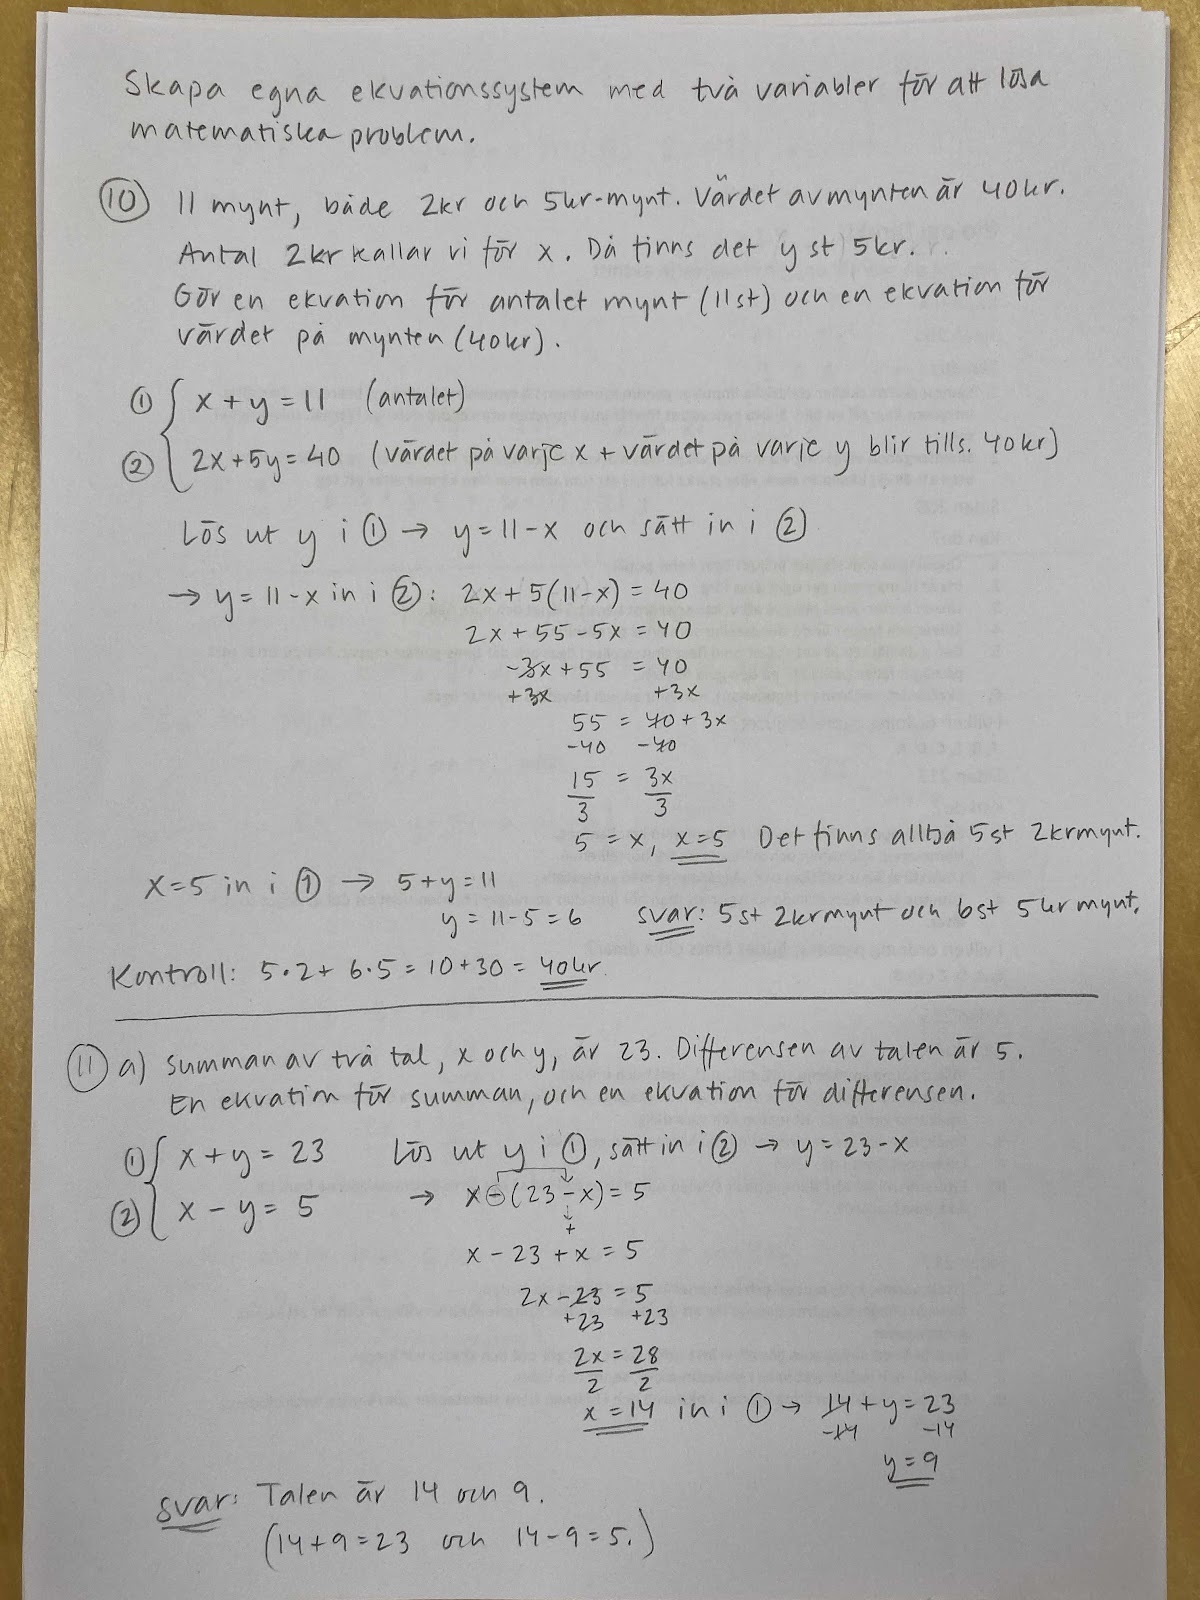 Skapa egna ekvationssystem med två variabler för att lösa
matematiska problem.
⑩ 11 mynt, både 2kr och 5kr-mynt. Värdet av mynten är 40kr.
Antal 2kr kallar vi för x. Då finns det y st 5kr.
Gör en ekvation för antalet mynt (11st) och en ekvation för
värdet på mynten (40kr).
① { x + y = 11 (antalet)
② { 2x+5y=40 (värdet på varje x + värdet på varje y blir tills. 40kr)
Lös ut y i ① → y=11-x och sätt in i ②
→ y=11-x in i ②: 2x+5(11-x) = 40
2x + 55 - 5x = 40
-3x + 55 = 40
+3x +3x
55 = 40 + 3x
-40 -40
15/3 = 3x/3
5 = x, x=5 Det finns alltså 5st 2krmynt.
x=5 in i ① → 5+y=11
y = 11-5 = 6 svar: 5st 2krmynt och 6st 5kr mynt.
Kontroll: 5·2 + 6·5 = 10+30 = 40kr.
⑪ a) Summan av två tal, x och y, är 23. Differensen av talen är 5.
En ekvation för summan, och en ekvation för differensen.
① { x + y = 23 Lös ut y i ①, sätt in i ② → y = 23-x
② { x - y = 5 → x-(23-x) = 5
+
x - 23 + x = 5
2x - 23 = 5
+23 +23
2x/2 = 28/2
x = 14 in i ① → 14 + y = 23
-14 -14
y = 9
svar: Talen är 14 och 9.
(14+9=23 och 14-9=5.)